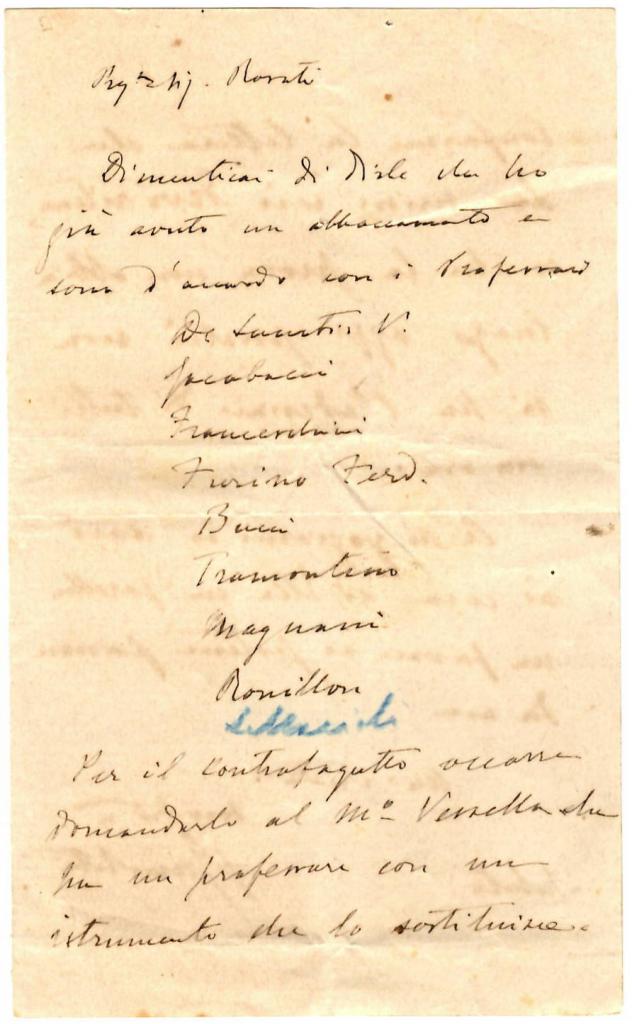 Sig. Rovati
Dimenticai di dirle che ho
già avuto un abboccamento e
sono d'accordo con i Professori
De Sanctis V.
Jacobacci
Franceschini
Furino Ferd.
Bucci
Tramontano
Magnani
Rouillon
Per il contrafagotto occorre
domandarlo al M.o Vessella che
ha un professore con un
istrumento che lo sostituisce.